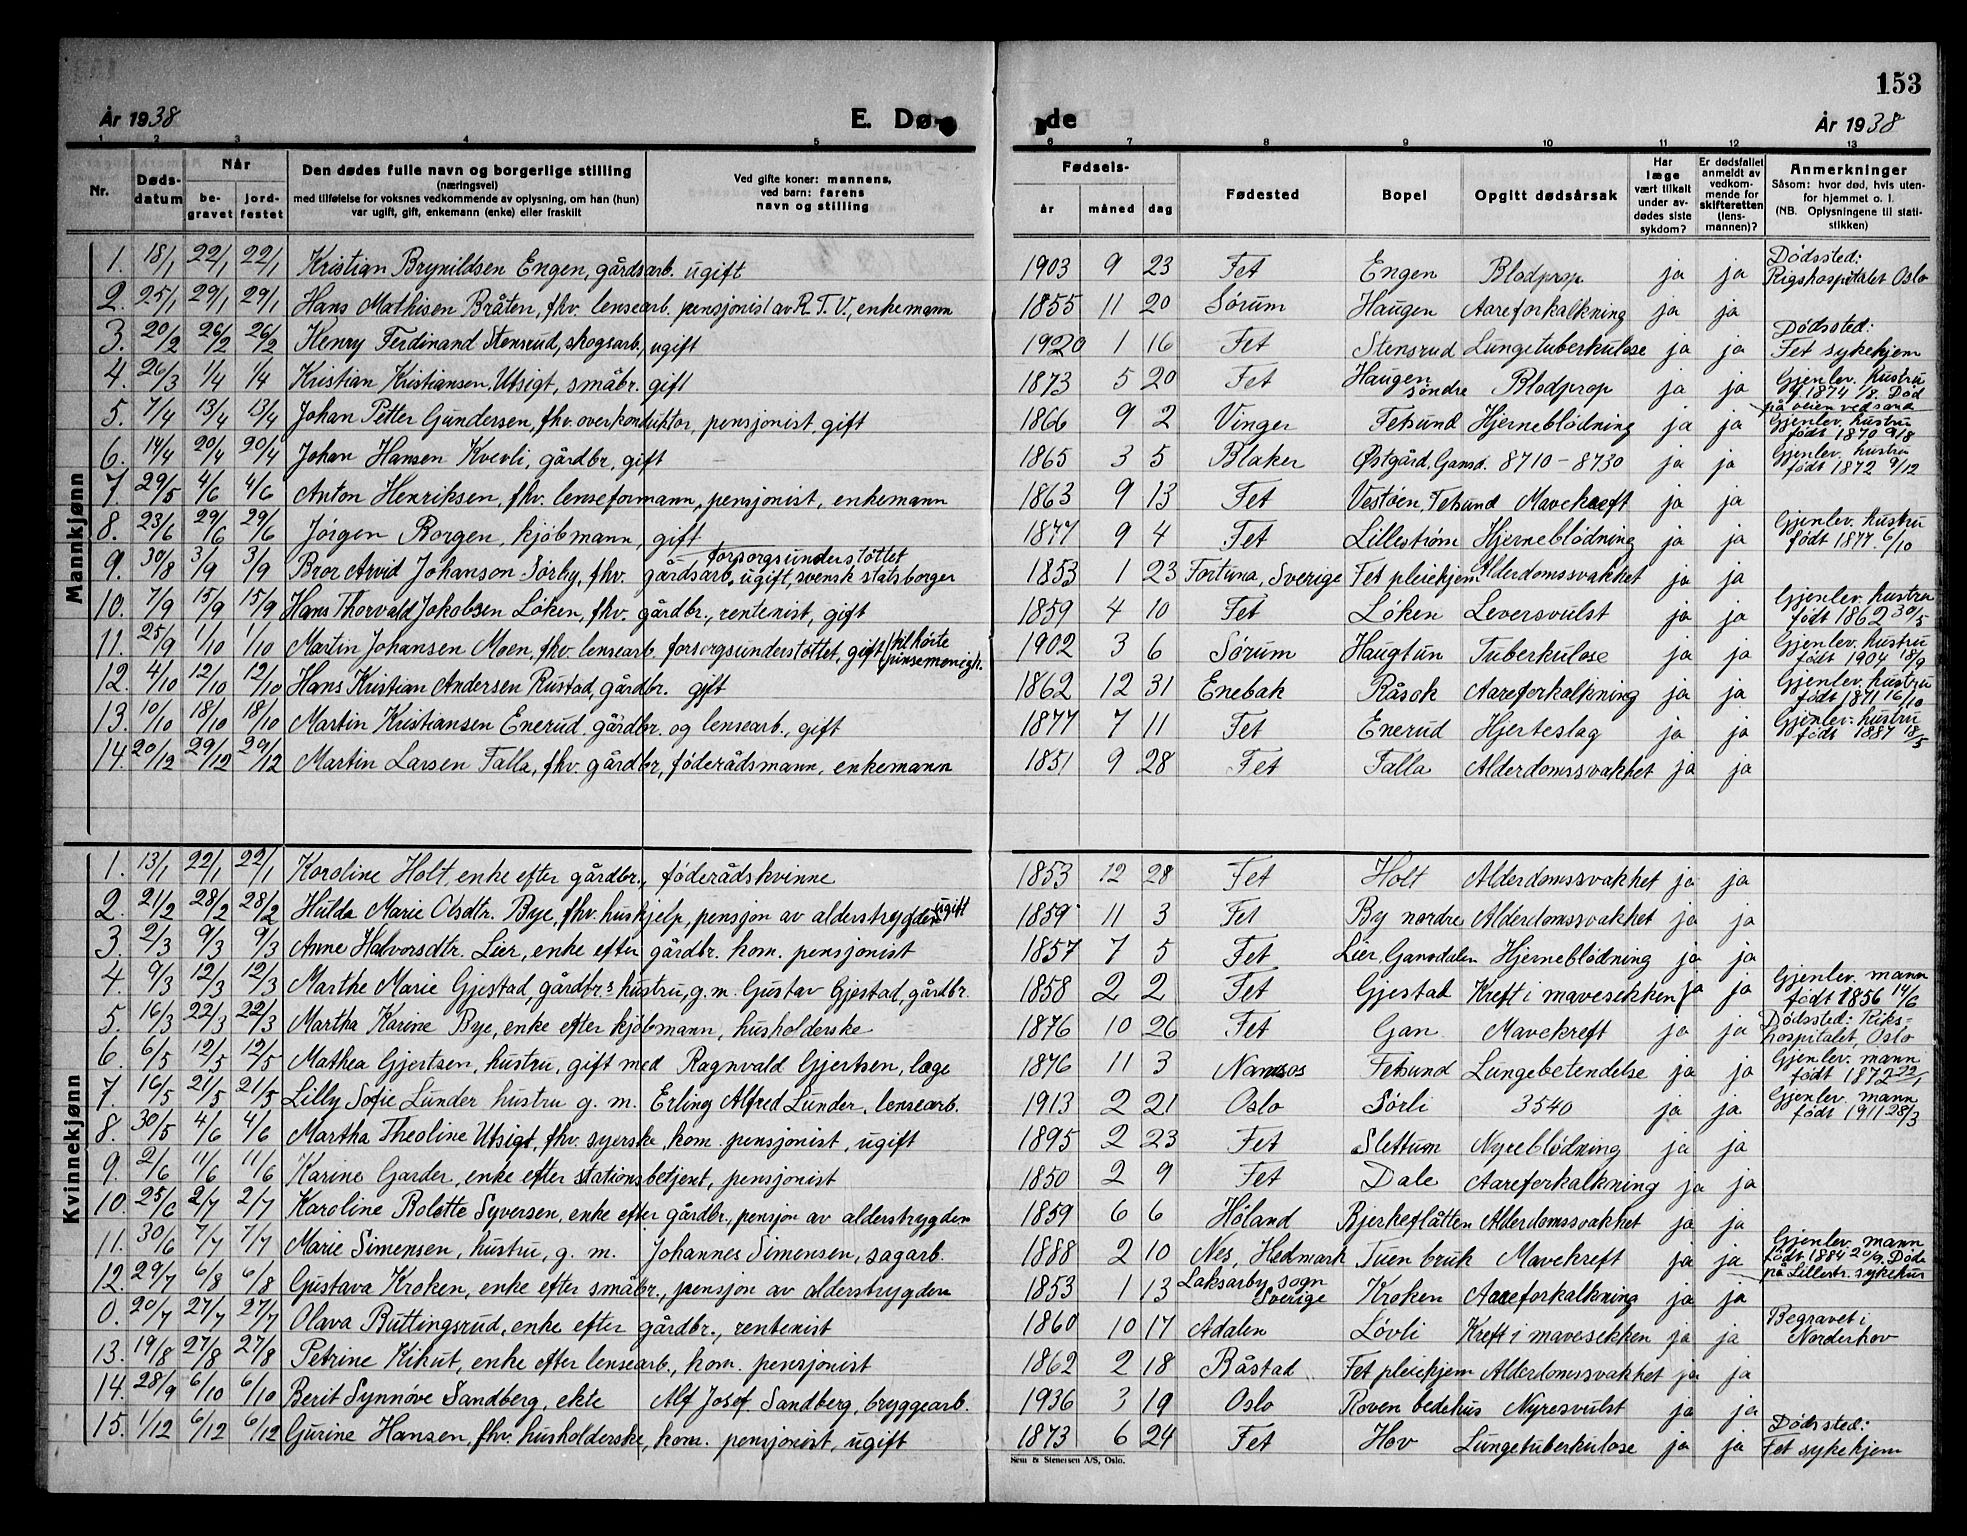 153
År 1938
E. Dø de
År 1938
1 2 3 4 5 6 7 8 9 10 11 12 13
Nr.
Dødsdatum
Når
begravet
jordfestet
Den dødes fulle navn og borgerlige stilling
(næringsvei)
med tilføielse for voksnes vedkommende av oplysning, om han (hun)
var ugift, gift, enkemann (enke) eller fraskilt
Ved gifte koner: mannens,
ved barn: farens
navn og stilling
Fødsels-
år måned dag
Fødested
Bopel
Opgitt dødsårsak
Har læge vært tilkalt under avdødes siste sykdom?
Er dødsfallet anmeldt av vedkommende for skifteretten (lensmannen)?
Anmerkninger
Såsom: hvor død, hvis utenfor hjemmet o. l.
(NB. Oplysningene til statistikken)
Mannkjønn
1. 18/1 22/1 22/1 Kristian Brynildsen Engen, gårdsarb. ugift 1903 9 23 Fet Engen Blodprop ja ja Dødssted: Rigshospitalet Oslo
2. 25/1 29/1 29/1 Hans Mathisen Bråten, fhv. lensearb. pensjonist av R.T.V., enkemann 1855 11 20 Sørum Haugen Aareforkalkning ja ja
3. 20/2 26/2 26/2 Henry Ferdinand Stensrud, skogsarb., ugift 1920 1 16 Fet Stensrud Lungetuberkulose ja ja Dødssted: Fet sykehjem
4. 26/3 1/4 1/4 Kristian Kristiansen Utsigt, småbr. gift 1873 5 20 Fet Haugen søndre Blodprop ja ja Gjenlev. hustru f. 1874 1/8. Død på veien ved sand
5. 7/4 13/4 13/4 Johan Petter Gundersen, fhv. overkonduktør, pensjonist, gift 1866 9 2 Vinger Fetsund Hjerneblödning ja ja Gjenlev. hustru født 1870 9/8
6. 14/4 20/4 20/4 Johan Hansen Kvevli, gårdbr., gift 1865 3 5 Blaker Østgård, Gansd. 8710-8730 ja ja Gjenlev. hustru født 1872 9/12
7. 29/5 4/6 4/6 Anton Henriksen, fhv. lenseformann, pensjonist, enkemann 1863 9 13 Fet Vestøen, Fetsund Mavekreft ja ja
8. 23/6 29/6 29/6 Jörgen Borgen, kjöbmann, gift 1877 9 4 Fet Lillestrøm Hjerneblödning ja ja Gjenlev. hustru født 1877 6/10
9. 30/8 3/9 3/9 Bror Arvid Johanson Sörby, fhv. gårdsarb., forsorgsunderstöttet ugift, svensk statsborger 1853 1 23 Fortuna, Sverige Fet pleiehjem Alderdomssvakhet ja ja
10. 7/9 15/9 15/9 Hans Thorvald Jakobsen Löken, fhv. gårdbr., rentenist, gift 1859 4 10 Fet Løken Leversvulst ja ja Gjenlev. hustru født 1862 30/5
11. 25/9 1/10 1/10 Martin Johansen Moen, fhv. lensearb. forsorgsunderstöttet, gift (tilhörte pinsemenigh. 1902 3 6 Sørum Haugtun Tuberkulose ja ja Gjenlev. hustru født 1904 18/9
12. 4/10 12/10 12/10 Hans Kristian Andersen Rustad, gårdbr. gift 1862 12 31 Enebak Råsok Aareforkalkning ja ja Gjenlev. hustru født 1871 16/10
13. 10/10 18/10 18/10 Martin Kristiansen Enerud gårdbr. og lensearb., gift 1877 7 11 Fet Enerud Hjerteslag ja ja Gjenlev. hustru født 1887 18/5
14. 20/12 29/12 29/12 Martin Larsen Falla, fhv. gårdbr., föderådsmann, enkemann 1851 9 28 Fet Falla Alderdomssvakhet ja ja
Kvinnekjønn
1. 13/1 22/1 22/1 Karoline Holt enke efter gårdbr., föderådskvinne 1853 12 28 Fet Holt Alderdomssvakhet ja ja
2. 21/2 28/2 28/2 Hulda Marie Olsdtr. Bye, fhv. huskjelp, pensjon av alderstrygden ugift 1859 11 3 Fet By nordre Alderdomssvakhet ja ja
3. 2/3 9/3 9/3 Anne Halvorsdtr. Lier, enke efter gårdbr. kom. pensjonist 1857 7 5 Fet Lier, Gansdalen Hjerneblödning ja ja
4. 9/3 12/3 12/3 Marthe Marie Gjestad, gårdbr.s hustru, g.m. Gustav Gjestad, gårdbr. 1858 2 2 Fet Gjestad Kreft i mavesekken ja ja Gjenlev. mann født 1856 14/6
5. 16/3 22/3 22/3 Martha Karine Bye, enke efter kjöbmann, husholderske 1876 10 26 Fet Gan Mavekreft ja ja Dødssted: Rikshospitalet, Oslo
6. 6/5 12/5 12/5 Mathea Gjertsen, hustru, gift med Ragnvald Gjertsen, læge 1876 11 3 Namsos Fetsund Lungebetendelse ja ja Gjenlev. mann født 1872 22/1
7. 16/5 21/5 21/5 Lilly Sofie Lunder hustru g. m. Erling Alfred Lunder, lensearb. 1913 2 21 Oslo Sörli 3540 ja ja Gjenlev. mann født 1911 28/3
8. 30/5 4/6 4/6 Martha Theoline Utsigt, fhv. syerske, kom. pensjonist, ugift 1895 2 23 Fet Slettum Nyreblödning ja ja
9. 2/6 11/6 11/6 Karine Garder, enke efter stationsbetjent, pensjonist 1850 2 9 Fet Dale Aareforkalkning ja ja
10. 25/6 2/7 2/7 Karoline Bolette Syversen, enke efter gårdbr., pensjon av alderstrygden 1859 6 6 Høland Bjerkeflåtten Alderdomssvakhet ja ja
11. 30/6 7/7 7/7 Marie Simensen, hustru, g. m. Johannes Simensen, sagarb. 1888 2 10 Nes, Hedmark Tuen bruk Mavekreft ja ja Gjenlev. mann født 1884 20/9. Død på Lillestr. sykehus
12. 29/7 6/8 6/8 Gustava Kroken, enke efter småbr., pensjon av alderstrygden 1853 1 13 Laksarby sogn Sverige Kroken Aareforkalkning ja ja
0. 20/7 27/7 27/7 Olava Buttingsrud, enke efter gårdbr., rentenist 1860 10 17 Adalen Lövli Kreft i mavesekken ja ja Begravet i Norderhov
13. 19/8 27/8 27/8 Petrine Kihut, enke efter lensearb., kom. pensjonist 1862 2 18 Båstad Fet pleiehjem Alderdomssvakhet ja ja
14. 28/9 6/10 6/10 Berit Synnöve Sandberg, ekte Alf Josef Sandberg, bryggearb. 1936 3 19 Oslo Roven bedehus Nyresvulst ja ja
15. 1/12 6/12 6/12 Gurine Hansen, fhv. husholderske, kom. pensjonist, ugift 1873 6 24 Fet Hov Lungetuberkulose ja ja Dødssted: Fet sykehjem
Sem & Stenersen A/S, Oslo.